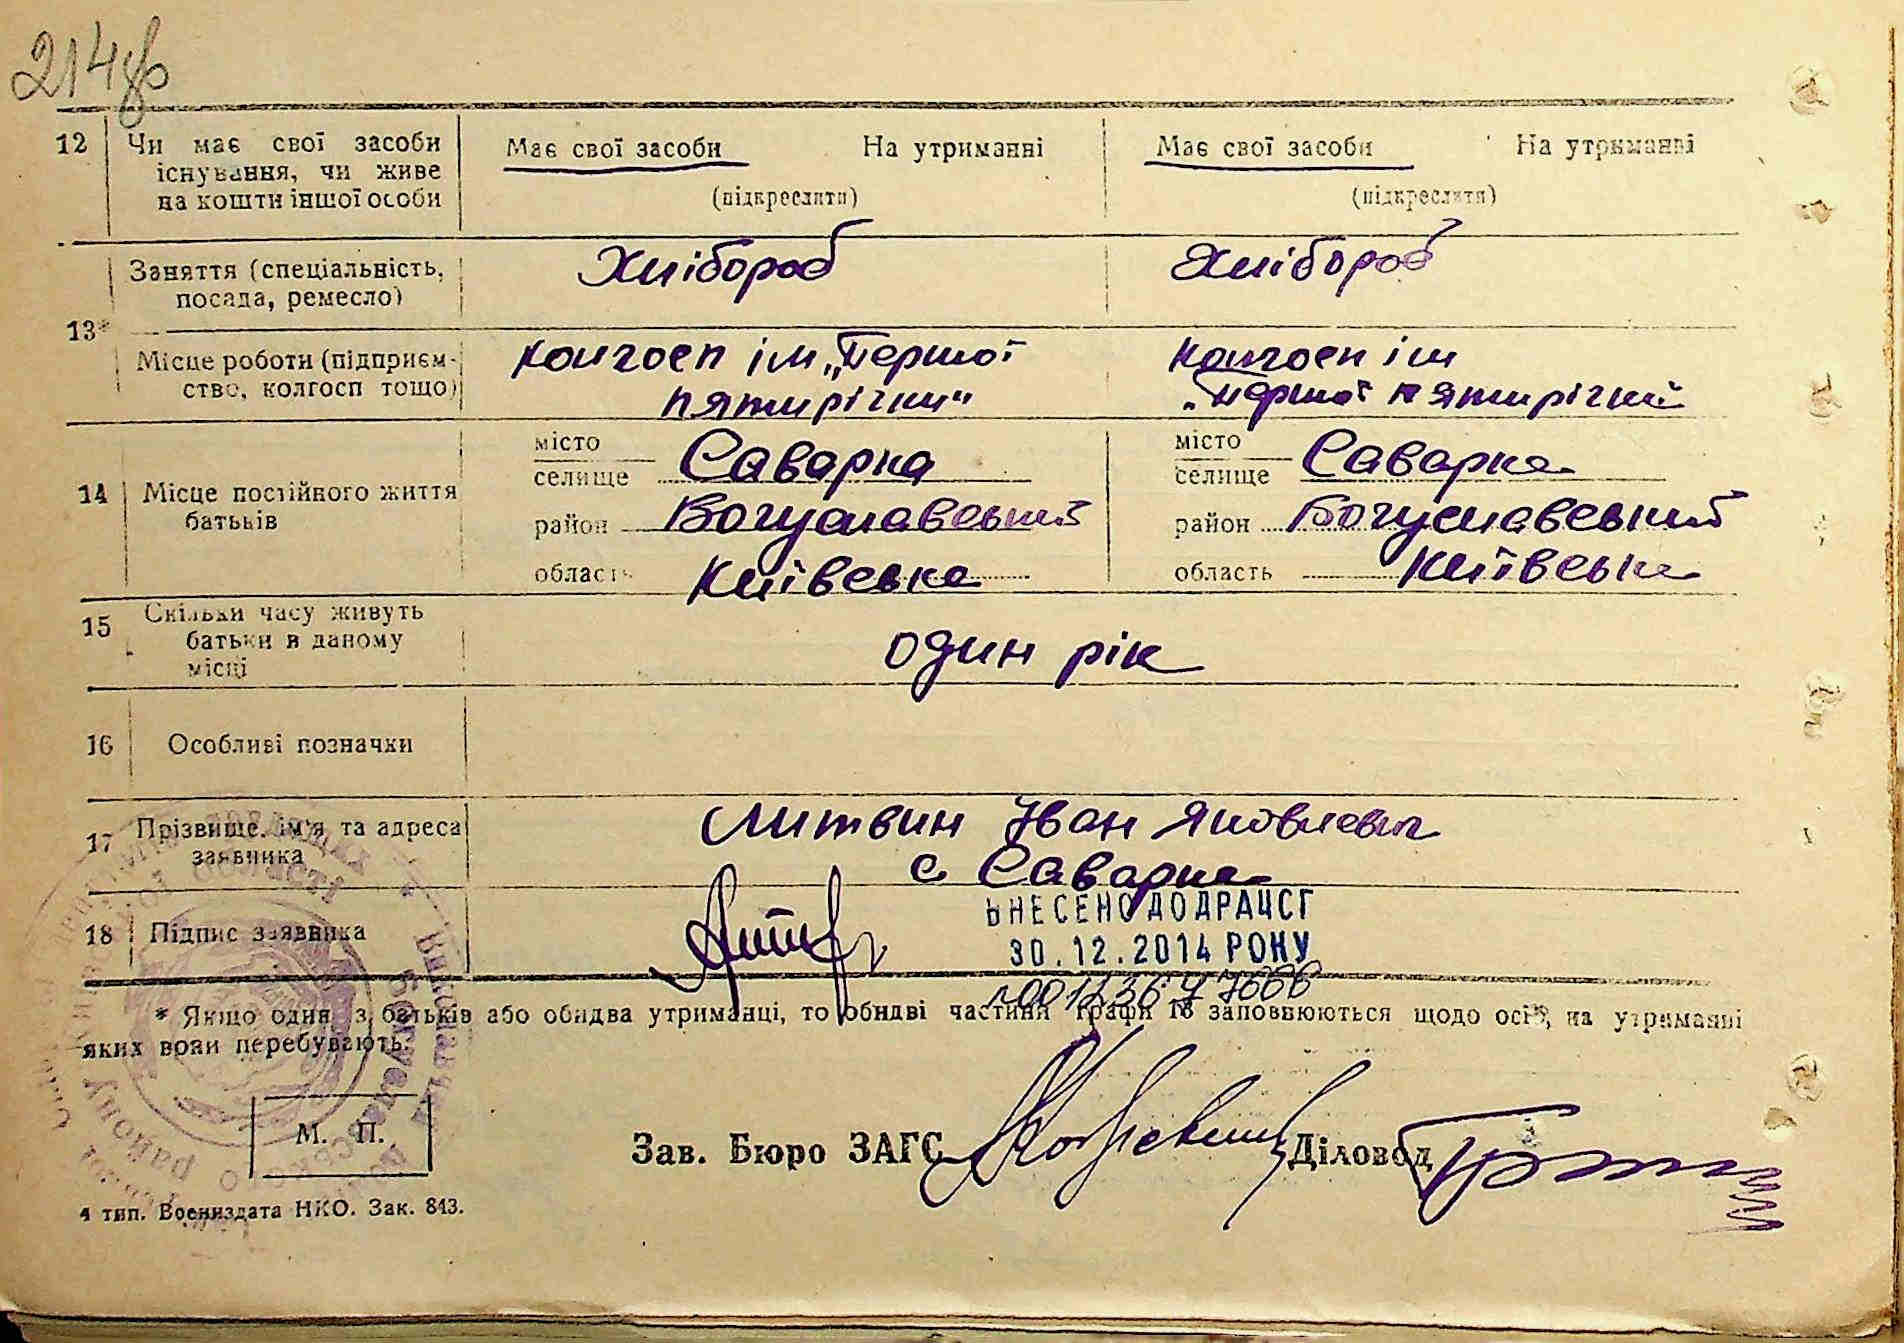 214
12 Чи має свої засоби існування, чи живе на кошти іншої особи
Має свої засоби На утриманні
(підкреслити)
Має свої засоби На утриманні
(підкреслити)
13*
Заняття (спеціальність, посада, ремесло)
Хлібороб
Хлібороб
Місце роботи (підприємство, колгосп тощо)
колгосп ім „Першої
пятирічки"
колгосп ім
„Першої пятирічки
14 Місце постійного життя батьків
місто
селище Саварка
район Богуславський
область Київська
місто
селище Саварка
район Богуславський
область Київська
15 Скільки часу живуть батьки в даному місці
один рік
16 Особливі позначки
17 Прізвище, ім'я та адреса заявника
Литвин Іван Яковлевич
с Саварка
18 Підпис заявника
ВНЕСЕНО ДО ДРАЦСГ
30.12.2014 РОКУ
* Якщо один з батьків або обидва утриманці, то обидві частини графи 13 заповнюються щодо осіб, на утриманні
яких вони перебувають.
М. П.
Зав. Бюро ЗАГС Діловод
4 тип. Воениздата НКО. Зак. 843.